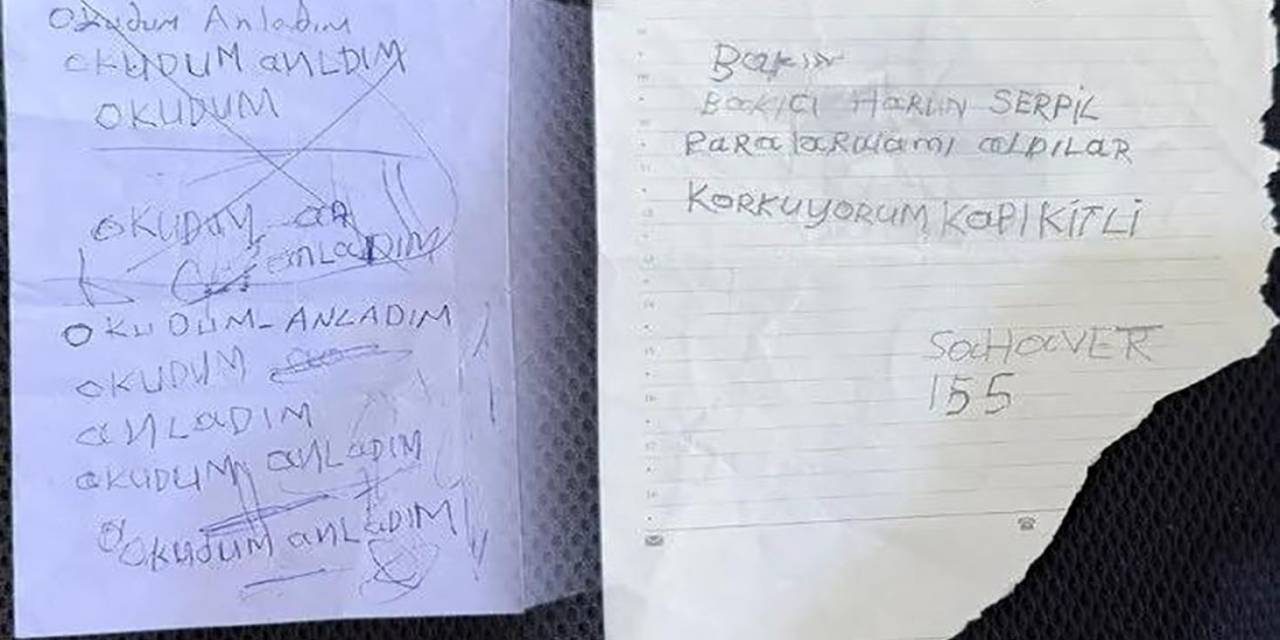 Okudum Anladım
OKUDUM anLDIM
OKUDUM
OKUDUM
anLaDIM
OKUDUM-ANLADIM
OKUDUM
anLaDIM
OKUDUM anLaDIM
OKuduM anLaDIM
BaKICI HaRUN SERPİL
PaRalaRulamı alDILAR
KORKUYORUM KaPI KİTLİ
SaHaVER
155